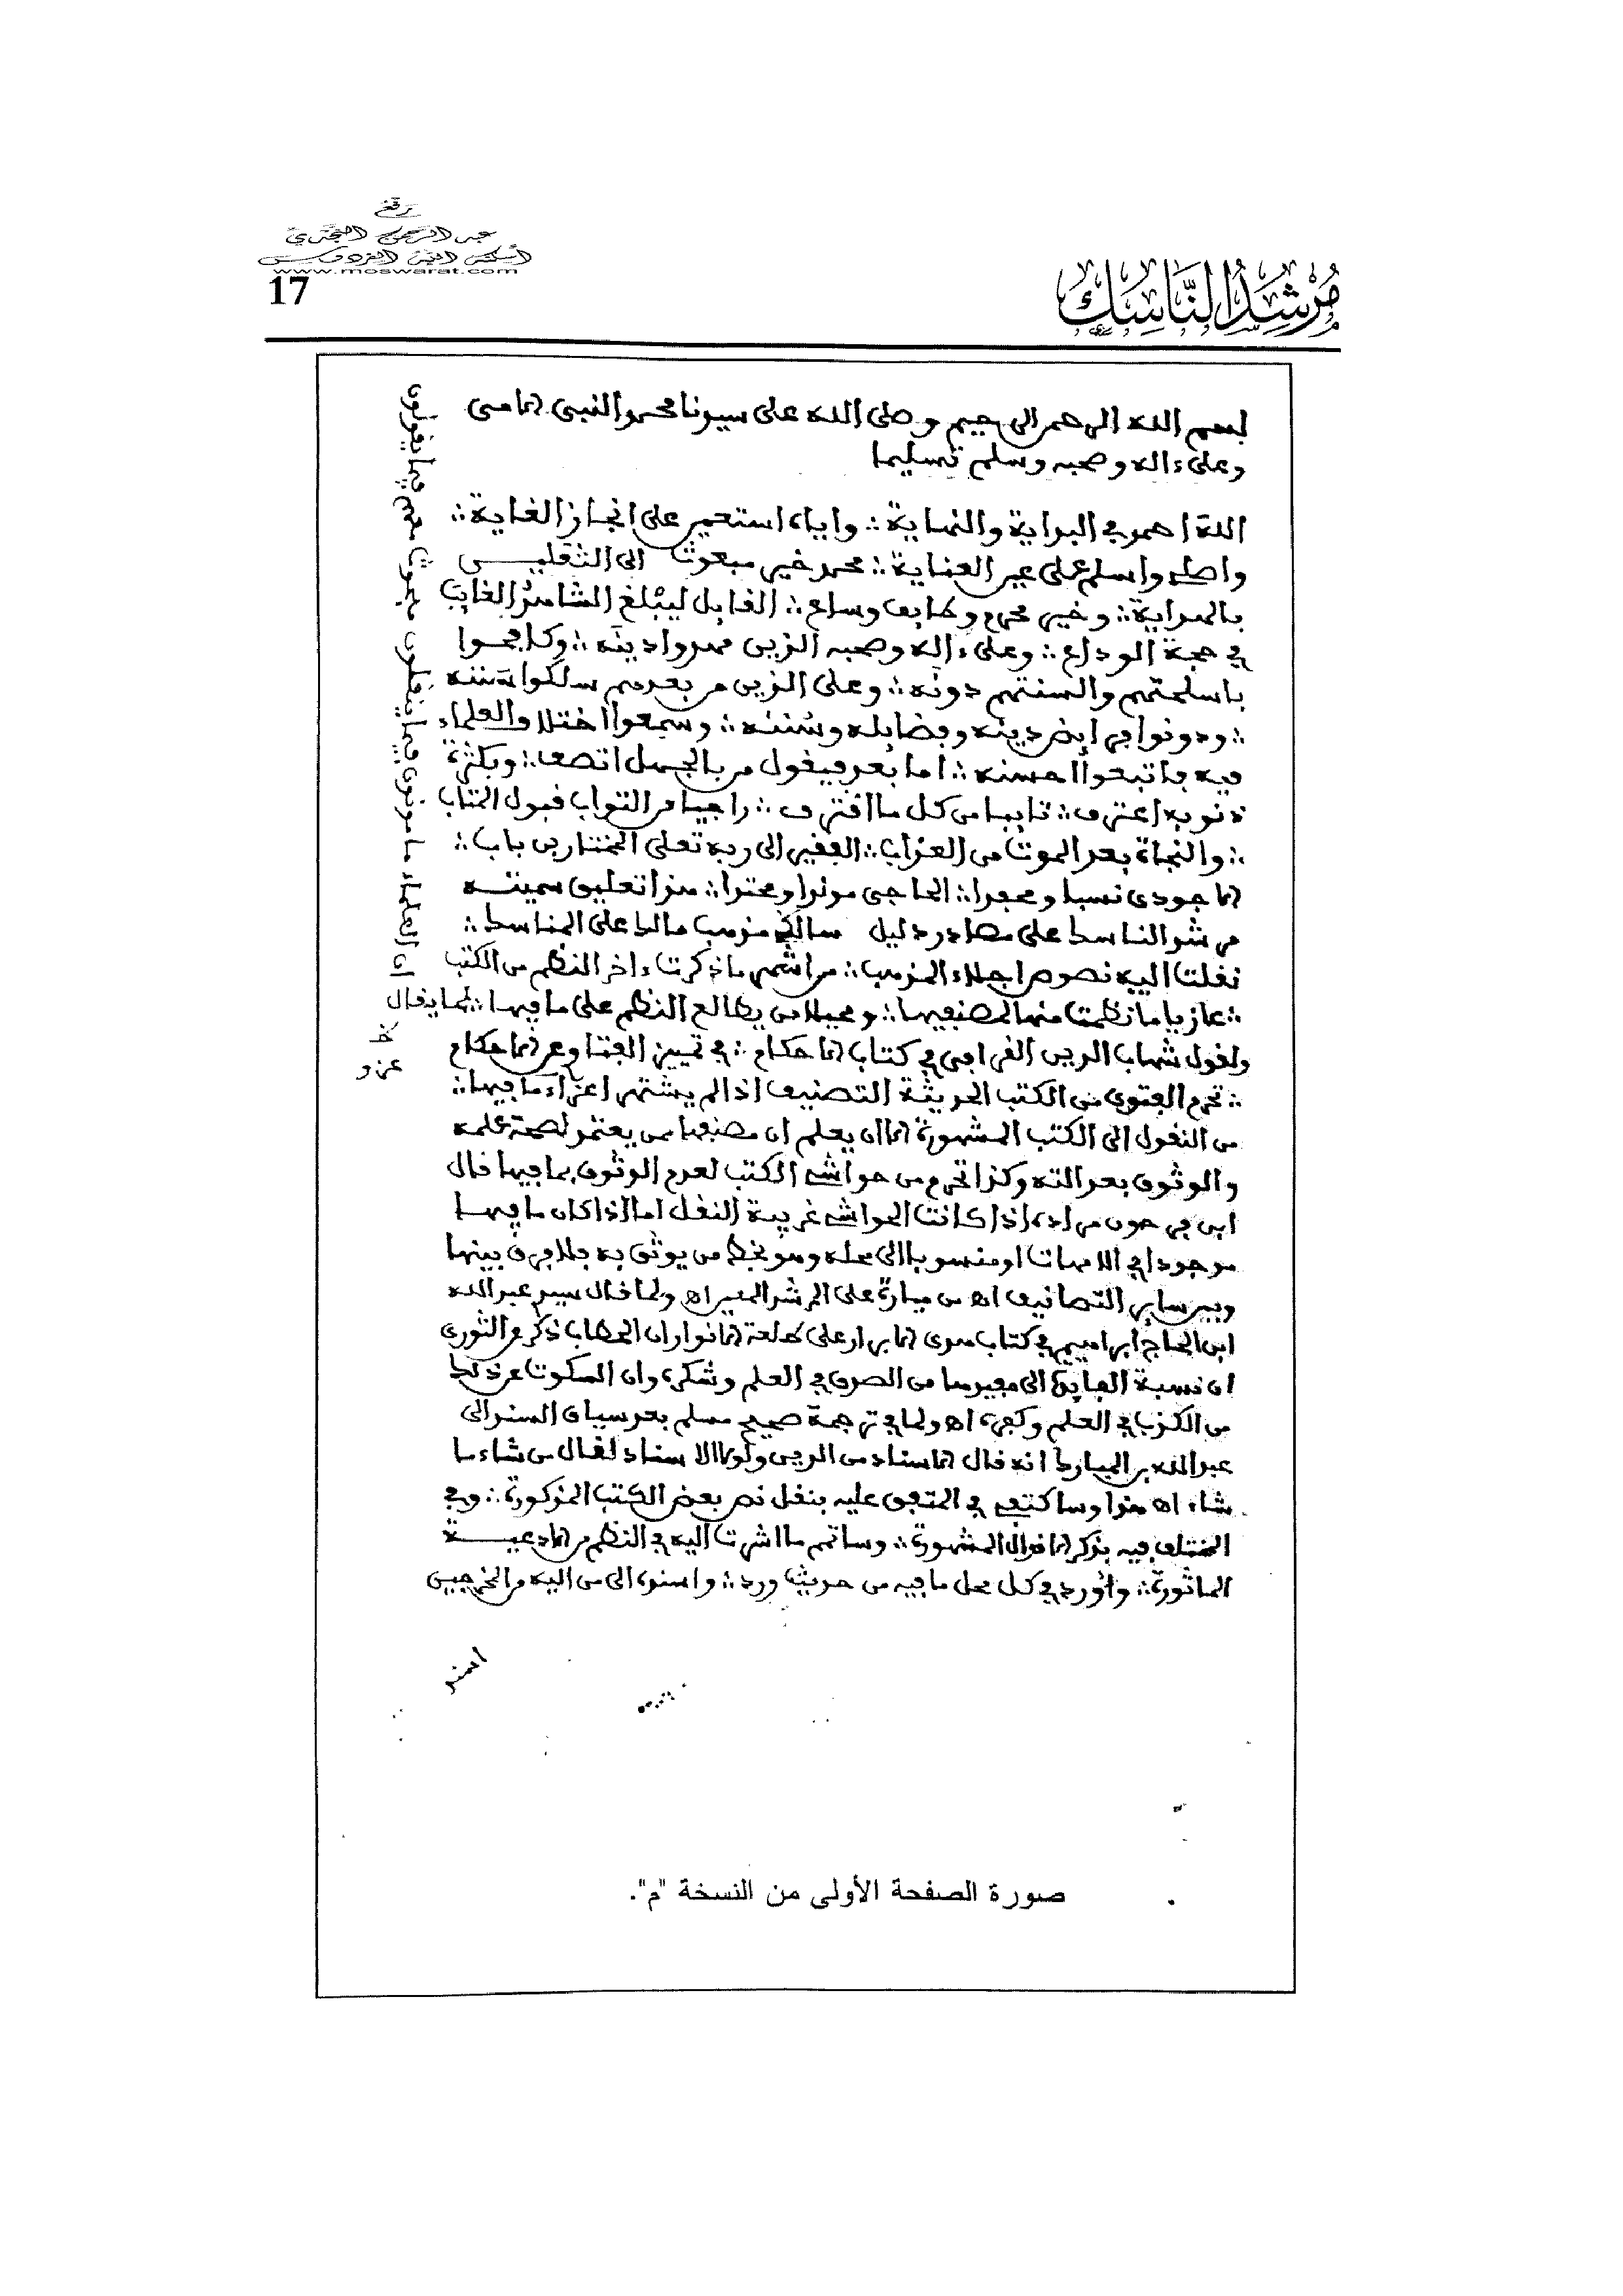 رفع
عبد الرحمن النجدي
أسكنه الله الفردوس
www.moswarat.com
17
مُرْشِدُ النَّاسِكِ
بسم الله الرحمن الرحيم وصلى الله على سيدنا محمد النبي الامي
وعلى ءاله وصحبه وسلم تسليما
الله احمد في البداية والنهاية ∴ واياه استعين على انجاز الغاية ∴
واصلي واسلم على عين العناية ∴ محمد خير مبعوث الى الثقليــن
بالهداية ∴ وخير محرم وطايف وساع ∴ القايل ليبلغ الشاهد الغايب
في حجة الوداع ∴ وعلى ءاله وصحبه الذين مهدوا دينه ∴ وكافحوا
باسلحتهم والسنتهم دونه ∴ وعلى الذين من بعدهم سلكوا سننه
∴ ودونوا فرايض دينه وفضايله وسننه ∴ وسمعوا اختلاف العلماء
فيه فاتبعوا احسنه ∴ اما بعد فيقول من بالجهل اتصف ∴ وبكثرة
ذنوبه اعترف ∴ تايبا من كل ما اقترف ∴ راجيا من التواب قبول المتاب
∴ والنجاة بعد الموت من العذاب ∴ الفقير الى ربه تعلى المختار بن باب ∴
الاجودي نسبا ومحفدا ∴ الحاجي مولدا ومحتدا ∴ هذا تعليق سميته
مرشد الناسك على مصادر دليل سالك مذهب مالك على المناسك ∴
نقلت اليه نصوص اجلاء المذهب ∴ من اشهر ما ذكرت ءاخر النظم من الكتب
∴ عازيا ما نظمت منها لمصنفيها ∴ ومحيلا من يطالع النظم على ما فيها ∴ لما يقال
ان العلماء مامونون فيما ينقلون مبحوث معهم فيما يقولون
ولقول شهاب الدين القرافي في كتاب الاحكام ∴ في تمييز الفتاوي عن الاحكام
∴ تحرم الفتوى من الكتب الحديثة التصنيف اذا لم يشتهر اعزاء ما فيها ∴
من النقول الى الكتب المشهورة الا ان يعلم ان مصنفها ممن يعتمد لصحة علمه
والوثوق بعدالته وكذا تحرم من حواشي الكتب لعدم الوثوق بما فيها قال
ابن فرحون مراده اذا كانت الحواشي غريبة النقل اما اذا كان ما فيها
موجودا في الامهات او منسوبا الى محله وهو بخط من يوثق به فلا فرق بينها
وبين ساير التصانيف اه من ميارة على المرشد المعين اه ولما قال سيد عبد الله
ابن الحاج ابراهيم في كتاب هدى الابرار على طلعة الانوار ان الحطاب ذكر عن الثوري
ان نسبة الفايدة الى مفيدها من الصدق في العلم وشكره وان السكوت عن ذلك
من الكذب في العلم وكفره اه ولما في ترجمة صحيح مسلم بعد سياق السند الى
عبد الله بن المبارك انه قال الاسناد من الدين ولولا الاسناد لقال من شاء ما
شاء اه هذا وساكتفي في المتفق عليه بنقل نص بعض الكتب المذكورة ∴ وفي
المختلف فيه بذكر الاقوال المشهورة ∴ وساتمم ما اشرت اليه في النظم من الادعيــة
الماثورة ∴ واورد في كل محل ما فيه من حديث ورد ∴ واسنده الى من اليه من المخرجين
صورة الصفحة الأولى من النسخة "م".